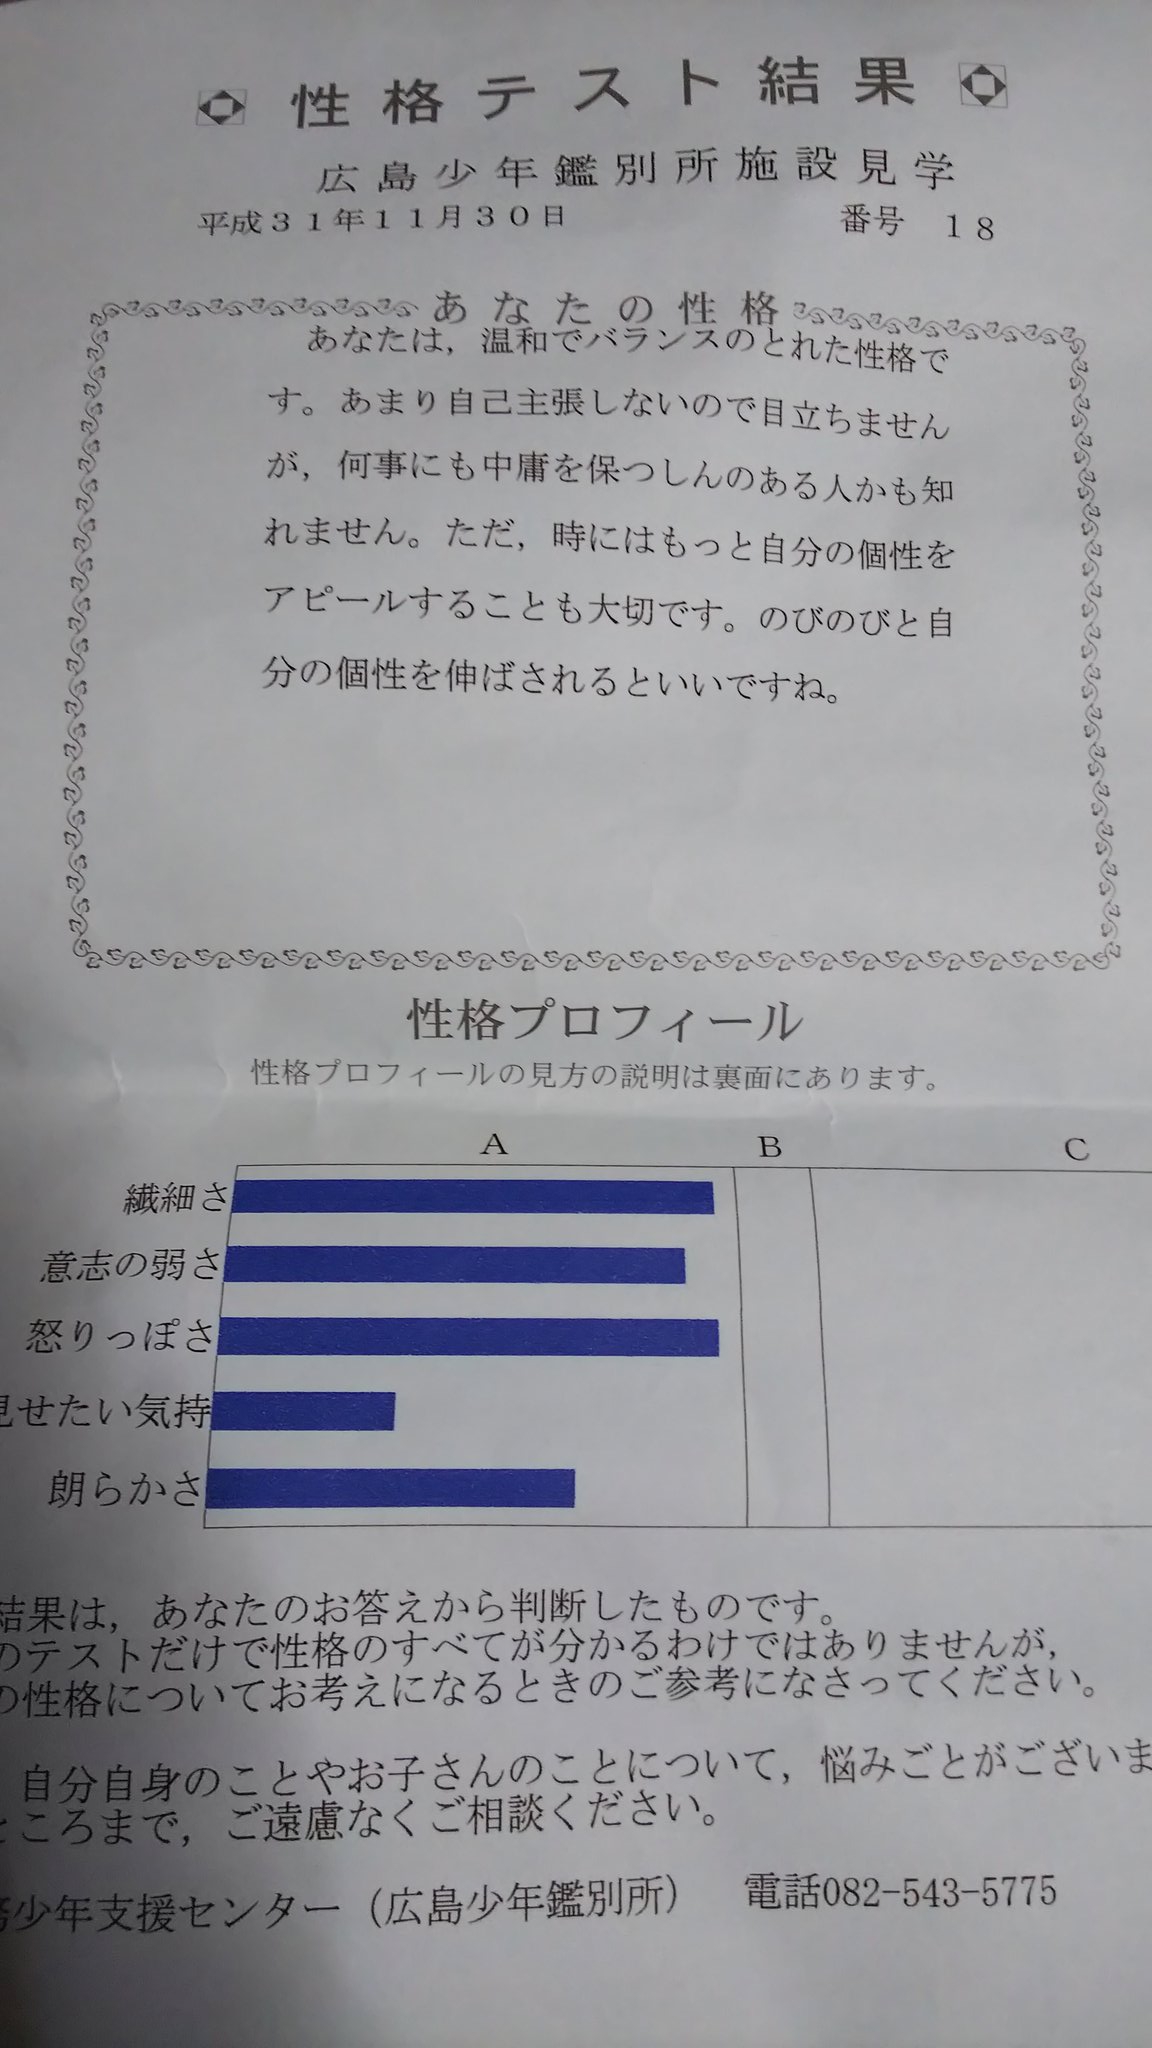 性格テスト結果
広島少年鑑別所施設見学
平成31年11月30日 番号 18
あなたの性格
あなたは，温和でバランスのとれた性格で
す。あまり自己主張しないので目立ちません
が，何事にも中庸を保つしんのある人かも知
れません。ただ，時にはもっと自分の個性を
アピールすることも大切です。のびのびと自
分の個性を伸ばされるといいですね。
性格プロフィール
性格プロフィールの見方の説明は裏面にあります。
A B C
繊細さ
意志の弱さ
怒りっぽさ
見せたい気持
朗らかさ
結果は，あなたのお答えから判断したものです。
のテストだけで性格のすべてが分かるわけではありませんが，
の性格についてお考えになるときのご参考になさってください。
自分自身のことやお子さんのことについて，悩みごとがございま
ところまで，ご遠慮なくご相談ください。
務少年支援センター（広島少年鑑別所） 電話082-543-5775